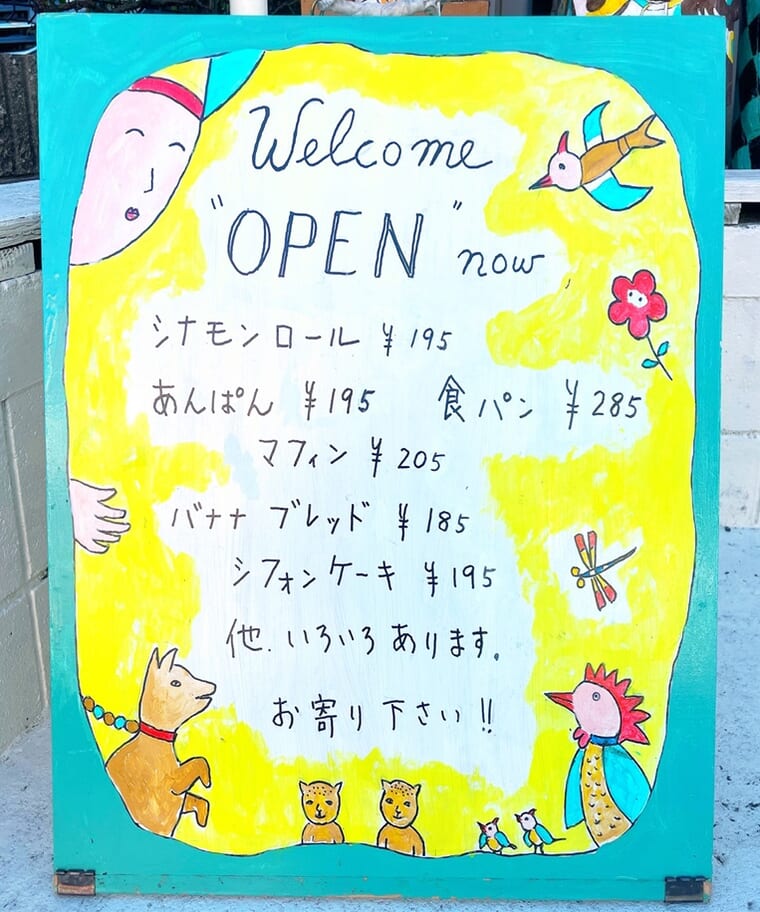 Welcome
"OPEN" now
シナモンロール ¥195
あんぱん ¥195 食パン ¥285
マフィン ¥205
バナナブレッド ¥185
シフォンケーキ ¥195
他、いろいろあります。
お寄り下さい!!